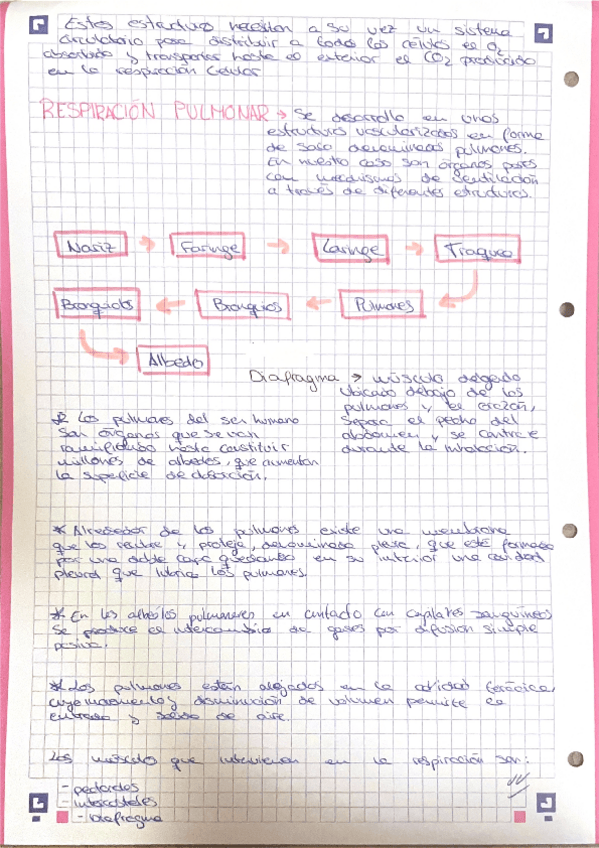 Estas estructuras necesitan a su vez un sistema
circulatorio para distribuir a todas las células el O2
absorbido y transportar hasta el exterior el CO2 producido
en la respiración celular
RESPIRACIÓN PULMONAR → Se desarrolla en unas
estructuras vascularizadas en forma
de saco denominadas pulmones.
En nuestro caso son órganos pares
con mecanismos de ventilación
a través de diferentes estructuras.
Nariz → Faringe → Laringe → Traquea
Bronquiolos ← Bronquios ← Pulmones
Albeolo
Diafragma → músculo delgado
ubicado debajo de los
pulmones y el corazón,
separa el pecho del
abdomen y se contrae
durante la inhalación.
* Los pulmones del ser humano
son órganos que se van
ramificando hasta constituir
millones de albeolos, que aumentan
la superficie de absorción.
* Alrededor de los pulmones existe una membrana
que los recubre y protege, denominada pleura, que está formada
por una doble capa quedando en su interior una cavidad
pleural que lubrica los pulmones.
* En los albeolos pulmonares en contacto con capilares sanguíneos
se produce el intercambio de gases por difusión simple
pasiva.
* Los pulmones están alojados en la cavidad torácica,
cuyo aumento y disminución de volumen permite la
entrada y salida de aire.
Los músculos que intervienen en la respiración son:
- pectorales
- intercostales
- diafragma